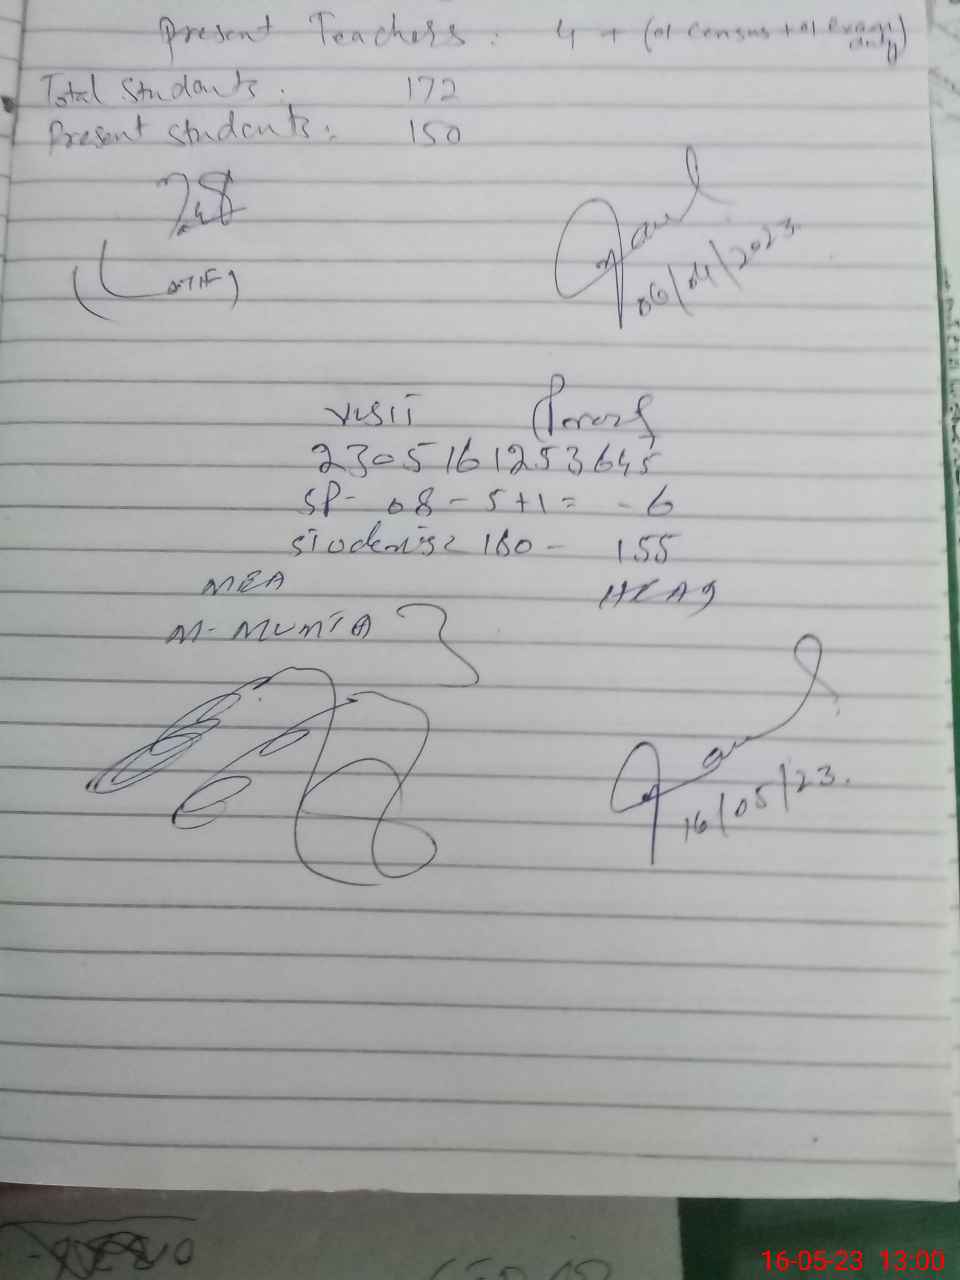 Present Teachers : 4 + (01 Census + 01 Exam duty)
Total Students : 172
Present students : 150
(LATIF)
06/04/2023
Visit Proof
230516125364​5
SP- 08 - 5+1 = - 6
Students= 160 - 155
MEA HEAD
M- MUMTA
16/05/23.
16-05-23 13:00